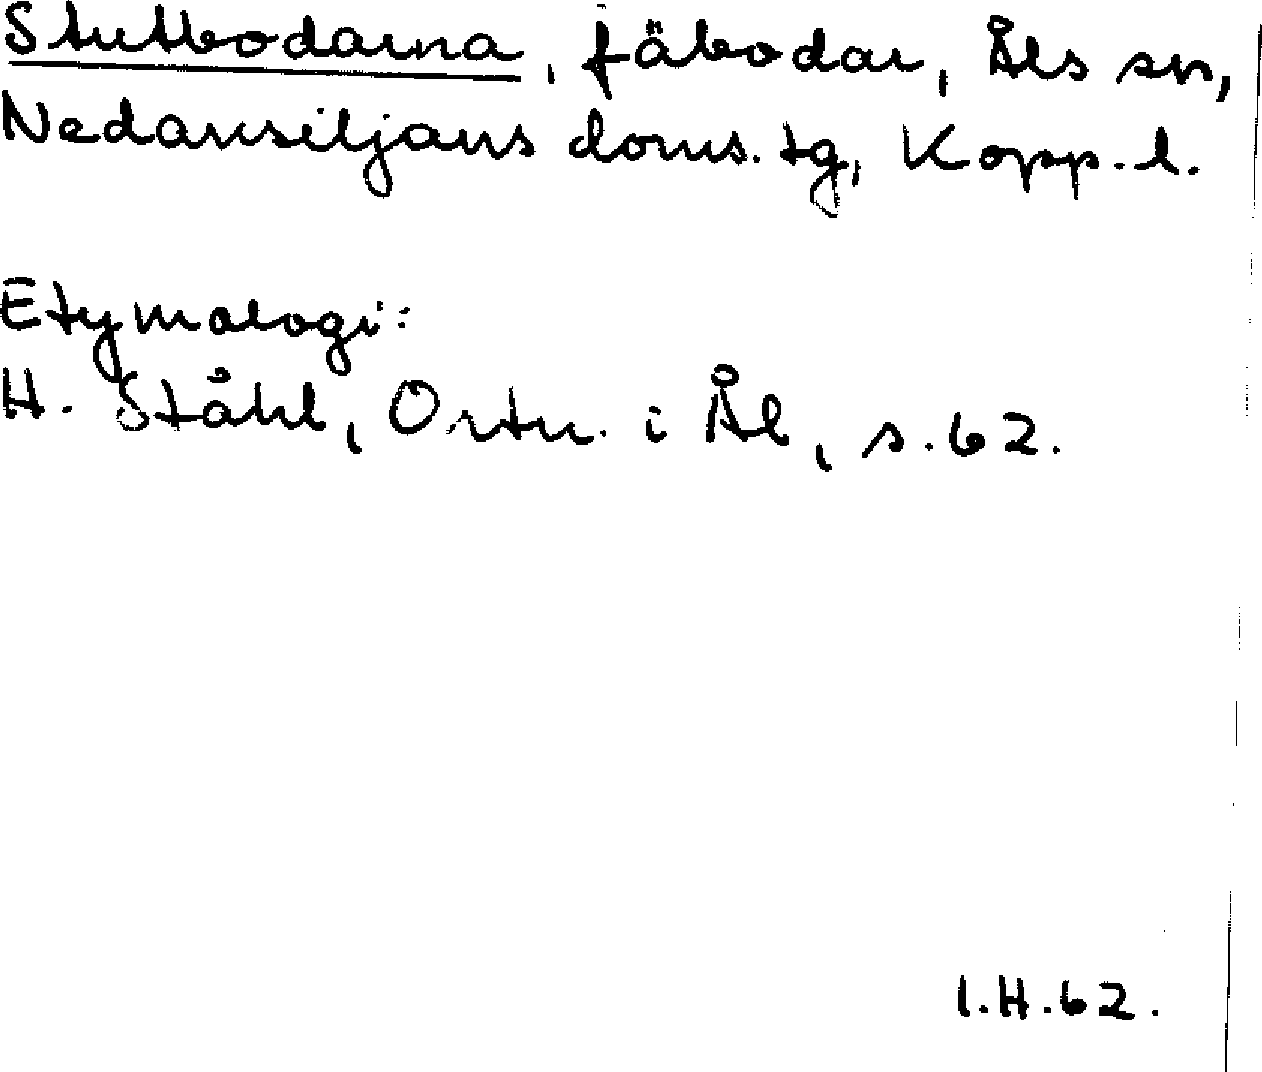 Stutbodarna, fäbodar, Åls sn,
Nedansiljans doms. tg, Kopp. l.
Etymologi:
H. Ståhl, Ortn. i Ål, s. 62.
I.H.62.